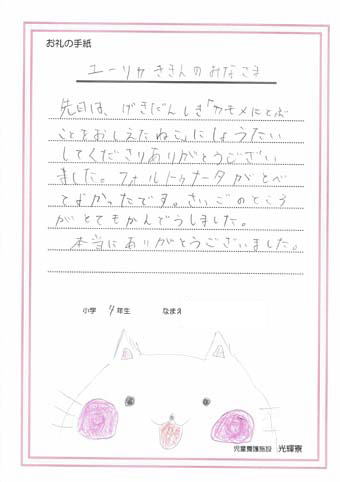 お礼の手紙
ユーリカききんのみなさま
先日は、げきだんしき「カモメにとぶ
ことをおしえたねこ」にしょうたい
してくださりありがとうござい
ました。フォルトゥナータがとべ
てよかったです。さいごのところ
がとてもかんどうしました。
本当にありがとうございました。
小学 4年生 なまえ
児童養護施設 光輝寮